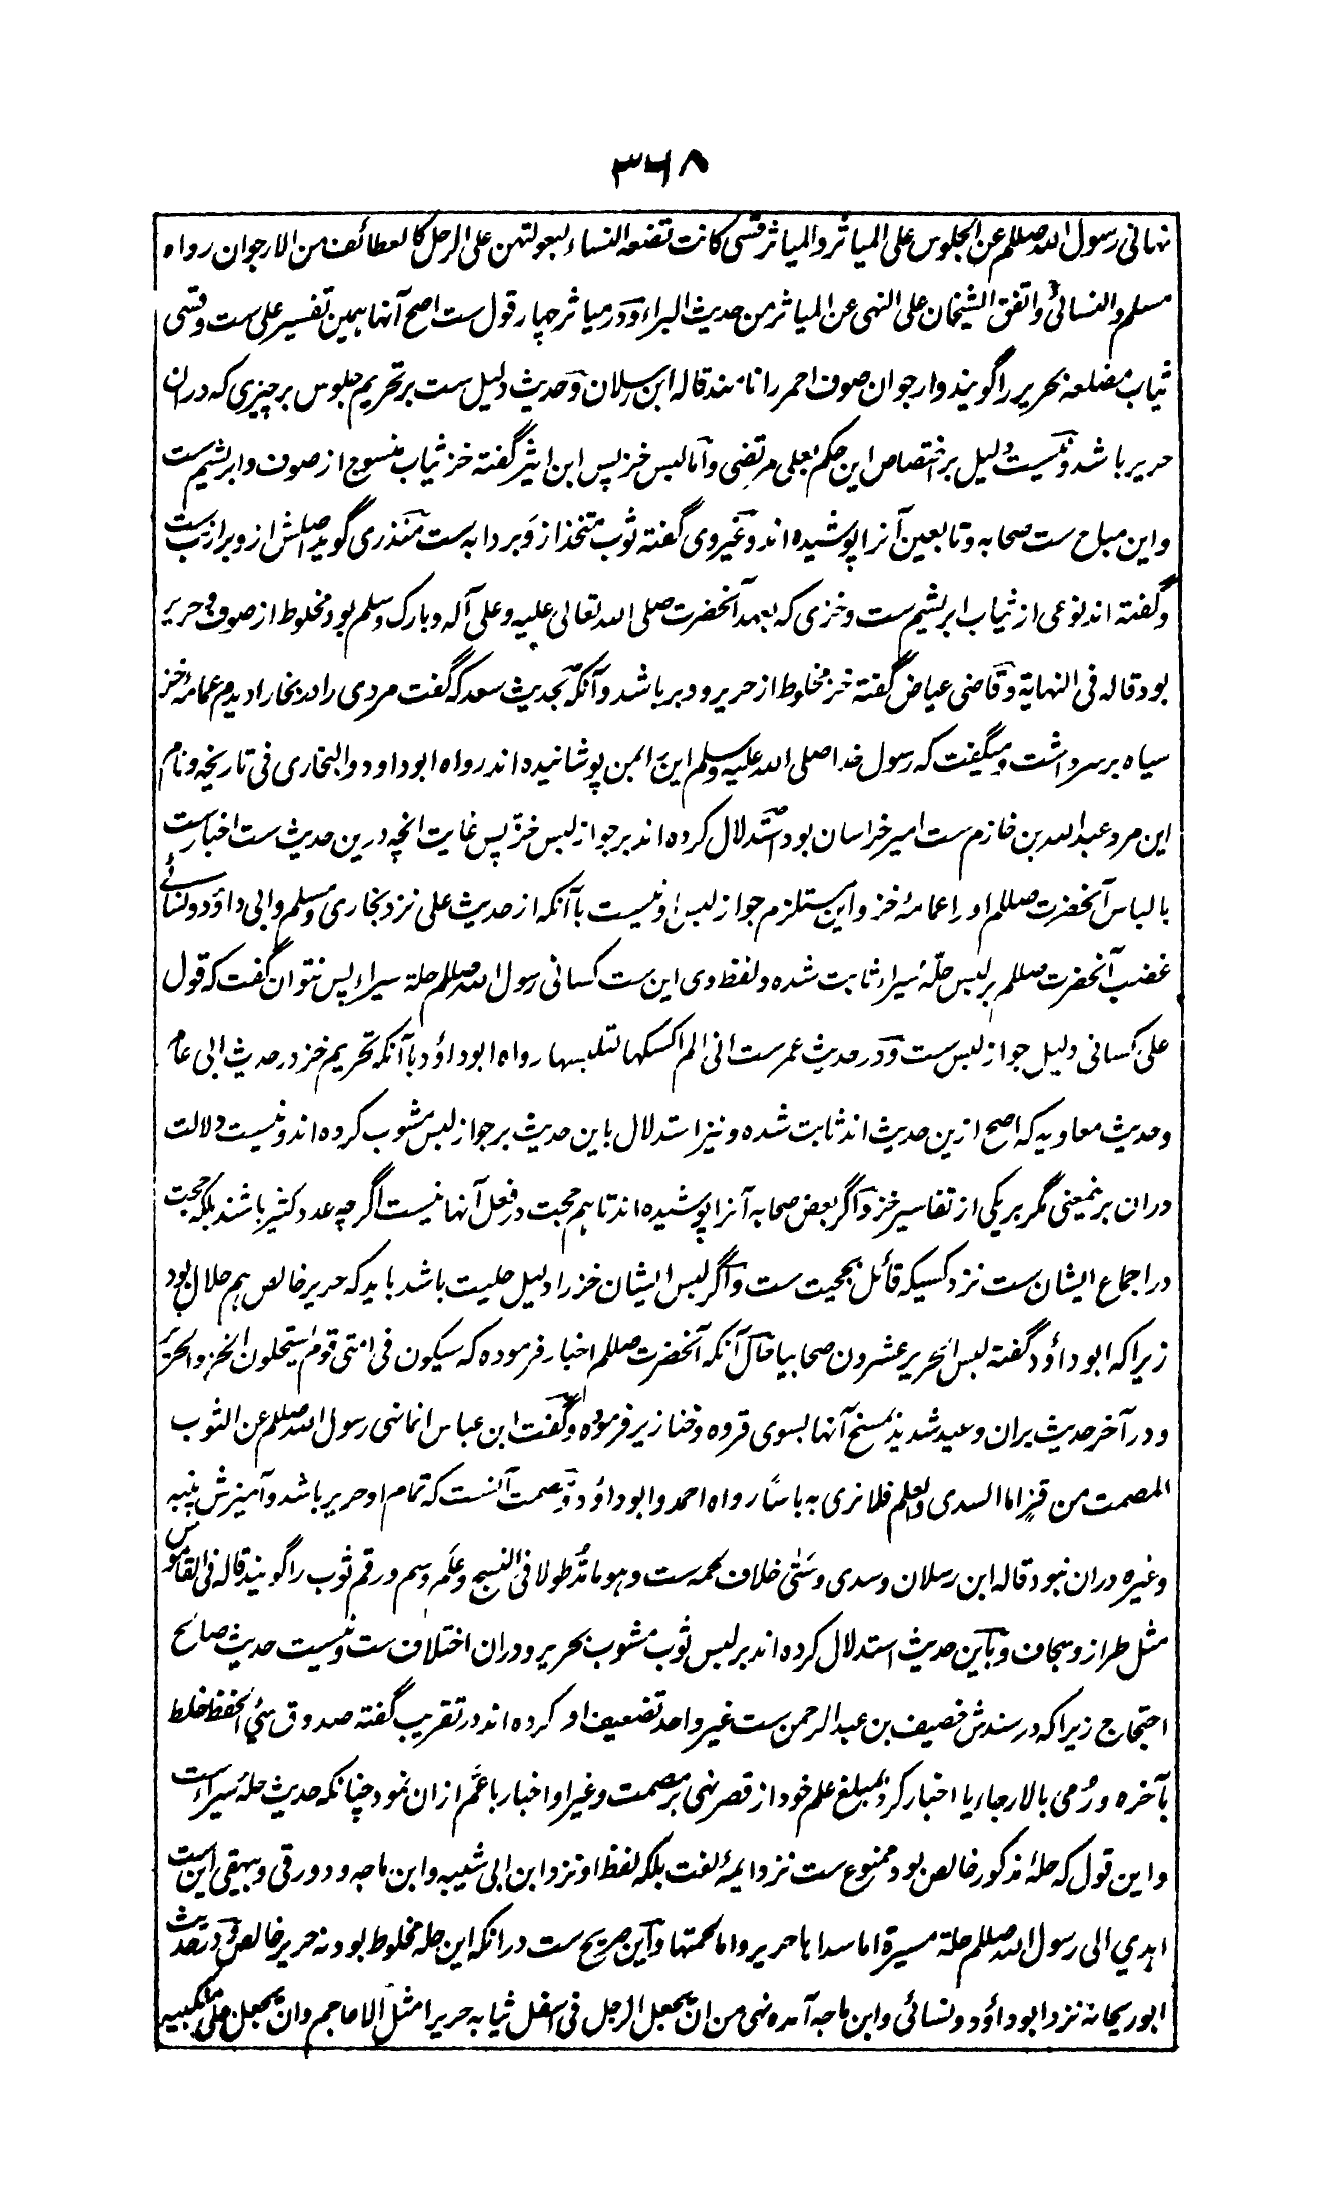 ۳۶۸
نهانی رسول الله صللم عن الجلوس علی المیاثر والمیاثر قسی کانت تضعه النساء لبعولتهن علی الرحل کالقطائف من الارجوان رواه
مسلم والنسائی واتفق الشیخان علی النهی عن المیاثر من حدیث البراء و در میاثر چهار قول ست اصح آنها همین تفسیر علی ست و قسی
ثیاب مضلعه بحریر را گویند و ارجوان صوف احمر را نامند قاله ابن رسلان و حدیث دلیل ست بر تحریم جلوس بر چیزی که دران
حریر باشد و نیست دلیل بر اختصاص این حکم بعلی مرتضی و اما لبس خز پس ابن اثیر گفته خز ثیاب منسوج از صوف و ابریشم ست
و این مباح ست صحابه و تابعین آنرا پوشیده اند و غیر وی گفته ثوب متخذ از وبر دابه ست منذری گوید اصلش از وبر ارنب ست
و گفته اند نوعی از ثیاب ابریشم ست و خزی که بعهد آنحضرت صلی الله تعالی علیه و علی آله و بارک وسلم بود مخلوط از صوف و حریر
بود قاله فی النهایة و قاضی عیاض گفته خز مخلوط از حریر و وبر باشد و آنکه بحدیث سعد که گفت مردی را در بخارا دیدم عمامه خز
سیاه بر سر داشت و میگفت که رسول خدا صلی الله علیه وسلم این المن پوشانیده اند رواه ابو داود والبخاری فی تاریخه و نام
این مرد عبد الله بن خازم ست امیر خراسان بود استدلال کرده اند بر جواز لبس خز پس غایت انچه درین حدیث ست اخبار ست
بالباس آنحضرت صللم او را عمامهٔ خز و این مستلزم جواز لبس او نیست با آنکه از حدیث علی نزد بخاری و مسلم و ابی داؤد و نسائے
غضب آنحضرت صللم بر لبس حلّهٔ سیراء ثابت شده و لفظ وی این ست کسانی رسول الله صللم حلة سیراء پس نتوان گفت که قول
علی کسانی دلیل جواز لبس ست و در حدیث عمر ست انی لم اکسکها لتلبسها رواه ابو داؤد با آنکه تحریم خز در حدیث ابی عامر
و حدیث معاویه که اصح ازین حدیث اند ثابت شده و نیز استدلال باین حدیث بر جواز لبس مشوب کرده اند و نیست دلالت
دران بر ینمعنی مگر بر یکی از تفاسیر خز و اگر بعض صحابه آنرا پوشیده اند تا هم حجت در فعل آنها نیست اگر چه عدد کثیر باشند بلکه حجت
در اجماع ایشان ست نزد کسیکه قائل بحجیت ست و اگر لبس ایشان خز را دلیل حلیت باشد باید که حریر خالص هم حلال بود
زیرا که ابو داؤد گفته لبس الحریر عشرون صحابیا حال آنکه آنحضرت صللم اخبار فرموده که سیکون فی امتی قوم یستحلون الخز والحریر
و در آخر حدیث بران وعید شدید بمسخ آنها بسوی قروه و خنازیر فرموده و گفت ابن عباس انما نهی رسول الله صللم عن الثوب
المصمت من قز اما السدی والعلم فلا نری به باسا رواه احمد و ابو داؤد و مصمت آنست که تمام او حریر باشد و آمیزش پنبه
و غیره دران نبود قاله ابن رسلان و سدی و ستی خلاف لحمه ست و هو ما مُدّ طولا فی النسج و علم وسم و رقم ثوب را گویند قاله فی القاموس
مثل طراز و سجاف و باین حدیث استدلال کرده اند بر لبس ثوب مشوب بحریر و دران اختلاف ست و نیست حدیث صالح
احتجاج زیرا که در سندش خصیف بن عبد الرحمن ست غیر واحد تضعیف او کرده اند در تقریب گفته صدوق سیئ الحفظ خلط
بآخره و رُمی بالارجاء یا اخبار کرد بمبلغ علم خود از قصر نهی بر مصمت و غیر او اخبار باعم ازان نمود چنانکه حدیث حلهٔ سیراء ست
و این قول که حلهٔ مذکور خالص بود ممنوع ست نزد ایمهٔ لغت بلکه لفظ او نزد ابن ابی شیبه و ابن ماجه و دورقی و بیهقی این ست
اهدی الی رسول الله صللم حلة مسیرة اما سداها حریر و اما لحمتها و این صریح ست در انکه این حله مخلوط بود نه حریر خالص و در حدیث
ابو ریحانه نزد ابو داؤد و نسائی و ابن ماجه آمده نهی من ان یجعل الرجل فی اسفل ثیابه حریرا مثل الاعاجم وان یجعل علی منکبیه